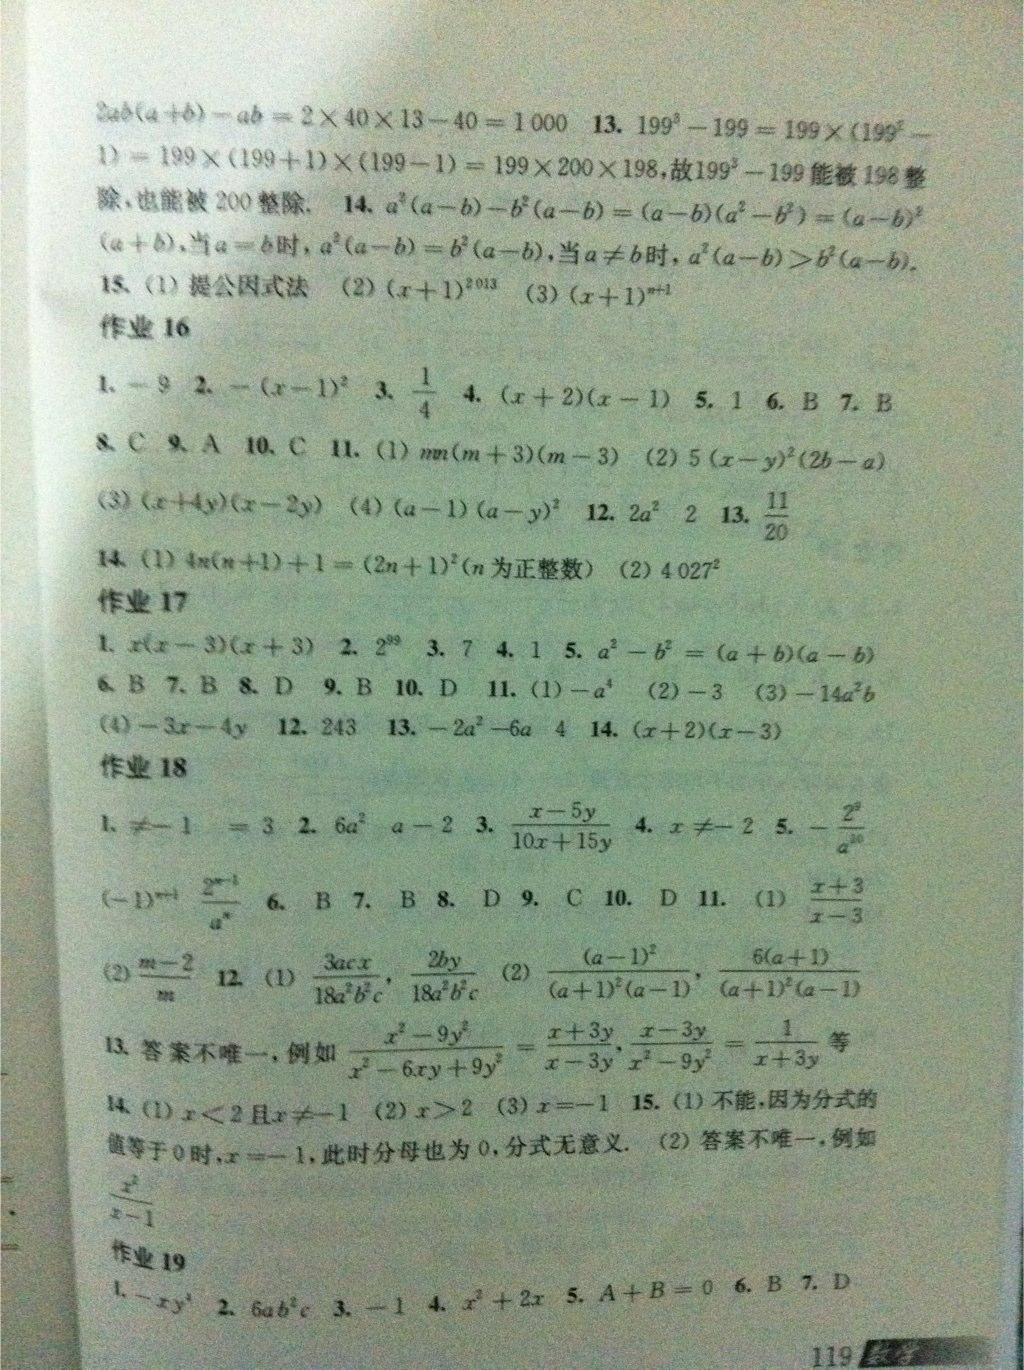 2ab(a+b)-ab=2×40×13-40=1 000 13. 199³-199=199×(199²-
1)=199×(199+1)×(199-1)=199×200×198,故199³-199能被198整
除,也能被200整除. 14. a²(a-b)-b²(a-b)=(a-b)(a²-b²)=(a-b)²
(a+b),当a=b时,a²(a-b)=b²(a-b),当a≠b时,a²(a-b)>b²(a-b).
15. (1) 提公因式法 (2) (x+1)²⁰¹³ (3) (x+1)ⁿ⁺¹
作业 16
1. -9 2. -(x-1)² 3. 1/4 4. (x+2)(x-1) 5. 1 6. B 7. B
8. C 9. A 10. C 11. (1) mn(m+3)(m-3) (2) 5(x-y)²(2b-a)
(3) (x+4y)(x-2y) (4) (a-1)(a-y)² 12. 2a² 2 13. 11/20
14. (1) 4n(n+1)+1=(2n+1)²(n为正整数) (2) 4 027²
作业 17
1. x(x-3)(x+3) 2. 2⁹⁹ 3. 7 4. 1 5. a²-b²=(a+b)(a-b)
6. B 7. B 8. D 9. B 10. D 11. (1) -a⁴ (2) -3 (3) -14a²b
(4) -3x-4y 12. 243 13. -2a²-6a 4 14. (x+2)(x-3)
作业 18
1. ≠-1 =3 2. 6a² a-2 3. (x-5y)/(10x+15y) 4. x≠-2 5. -2⁹/a¹⁰
(-1)ⁿ⁺¹ 2ⁿ⁻¹/aⁿ 6. B 7. B 8. D 9. C 10. D 11. (1) (x+3)/(x-3)
(2) (m-2)/m 12. (1) 3acx/18a²b²c, 2by/18a²b²c (2) (a-1)²/(a+1)²(a-1), 6(a+1)/(a+1)²(a-1)
13. 答案不唯一,例如 (x²-9y²)/(x²-6xy+9y²)=(x+3y)/(x-3y), (x-3y)/(x²-9y²)=1/(x+3y) 等
14. (1) x<2且x≠-1 (2) x>2 (3) x=-1 15. (1) 不能,因为分式的
值等于0时,x=-1,此时分母也为0,分式无意义. (2) 答案不唯一,例如
x²/(x-1)
作业 19
1. 2. 6ab²c 3. -1 4. x²+2x 5. A+B=0 6. B 7. D
119